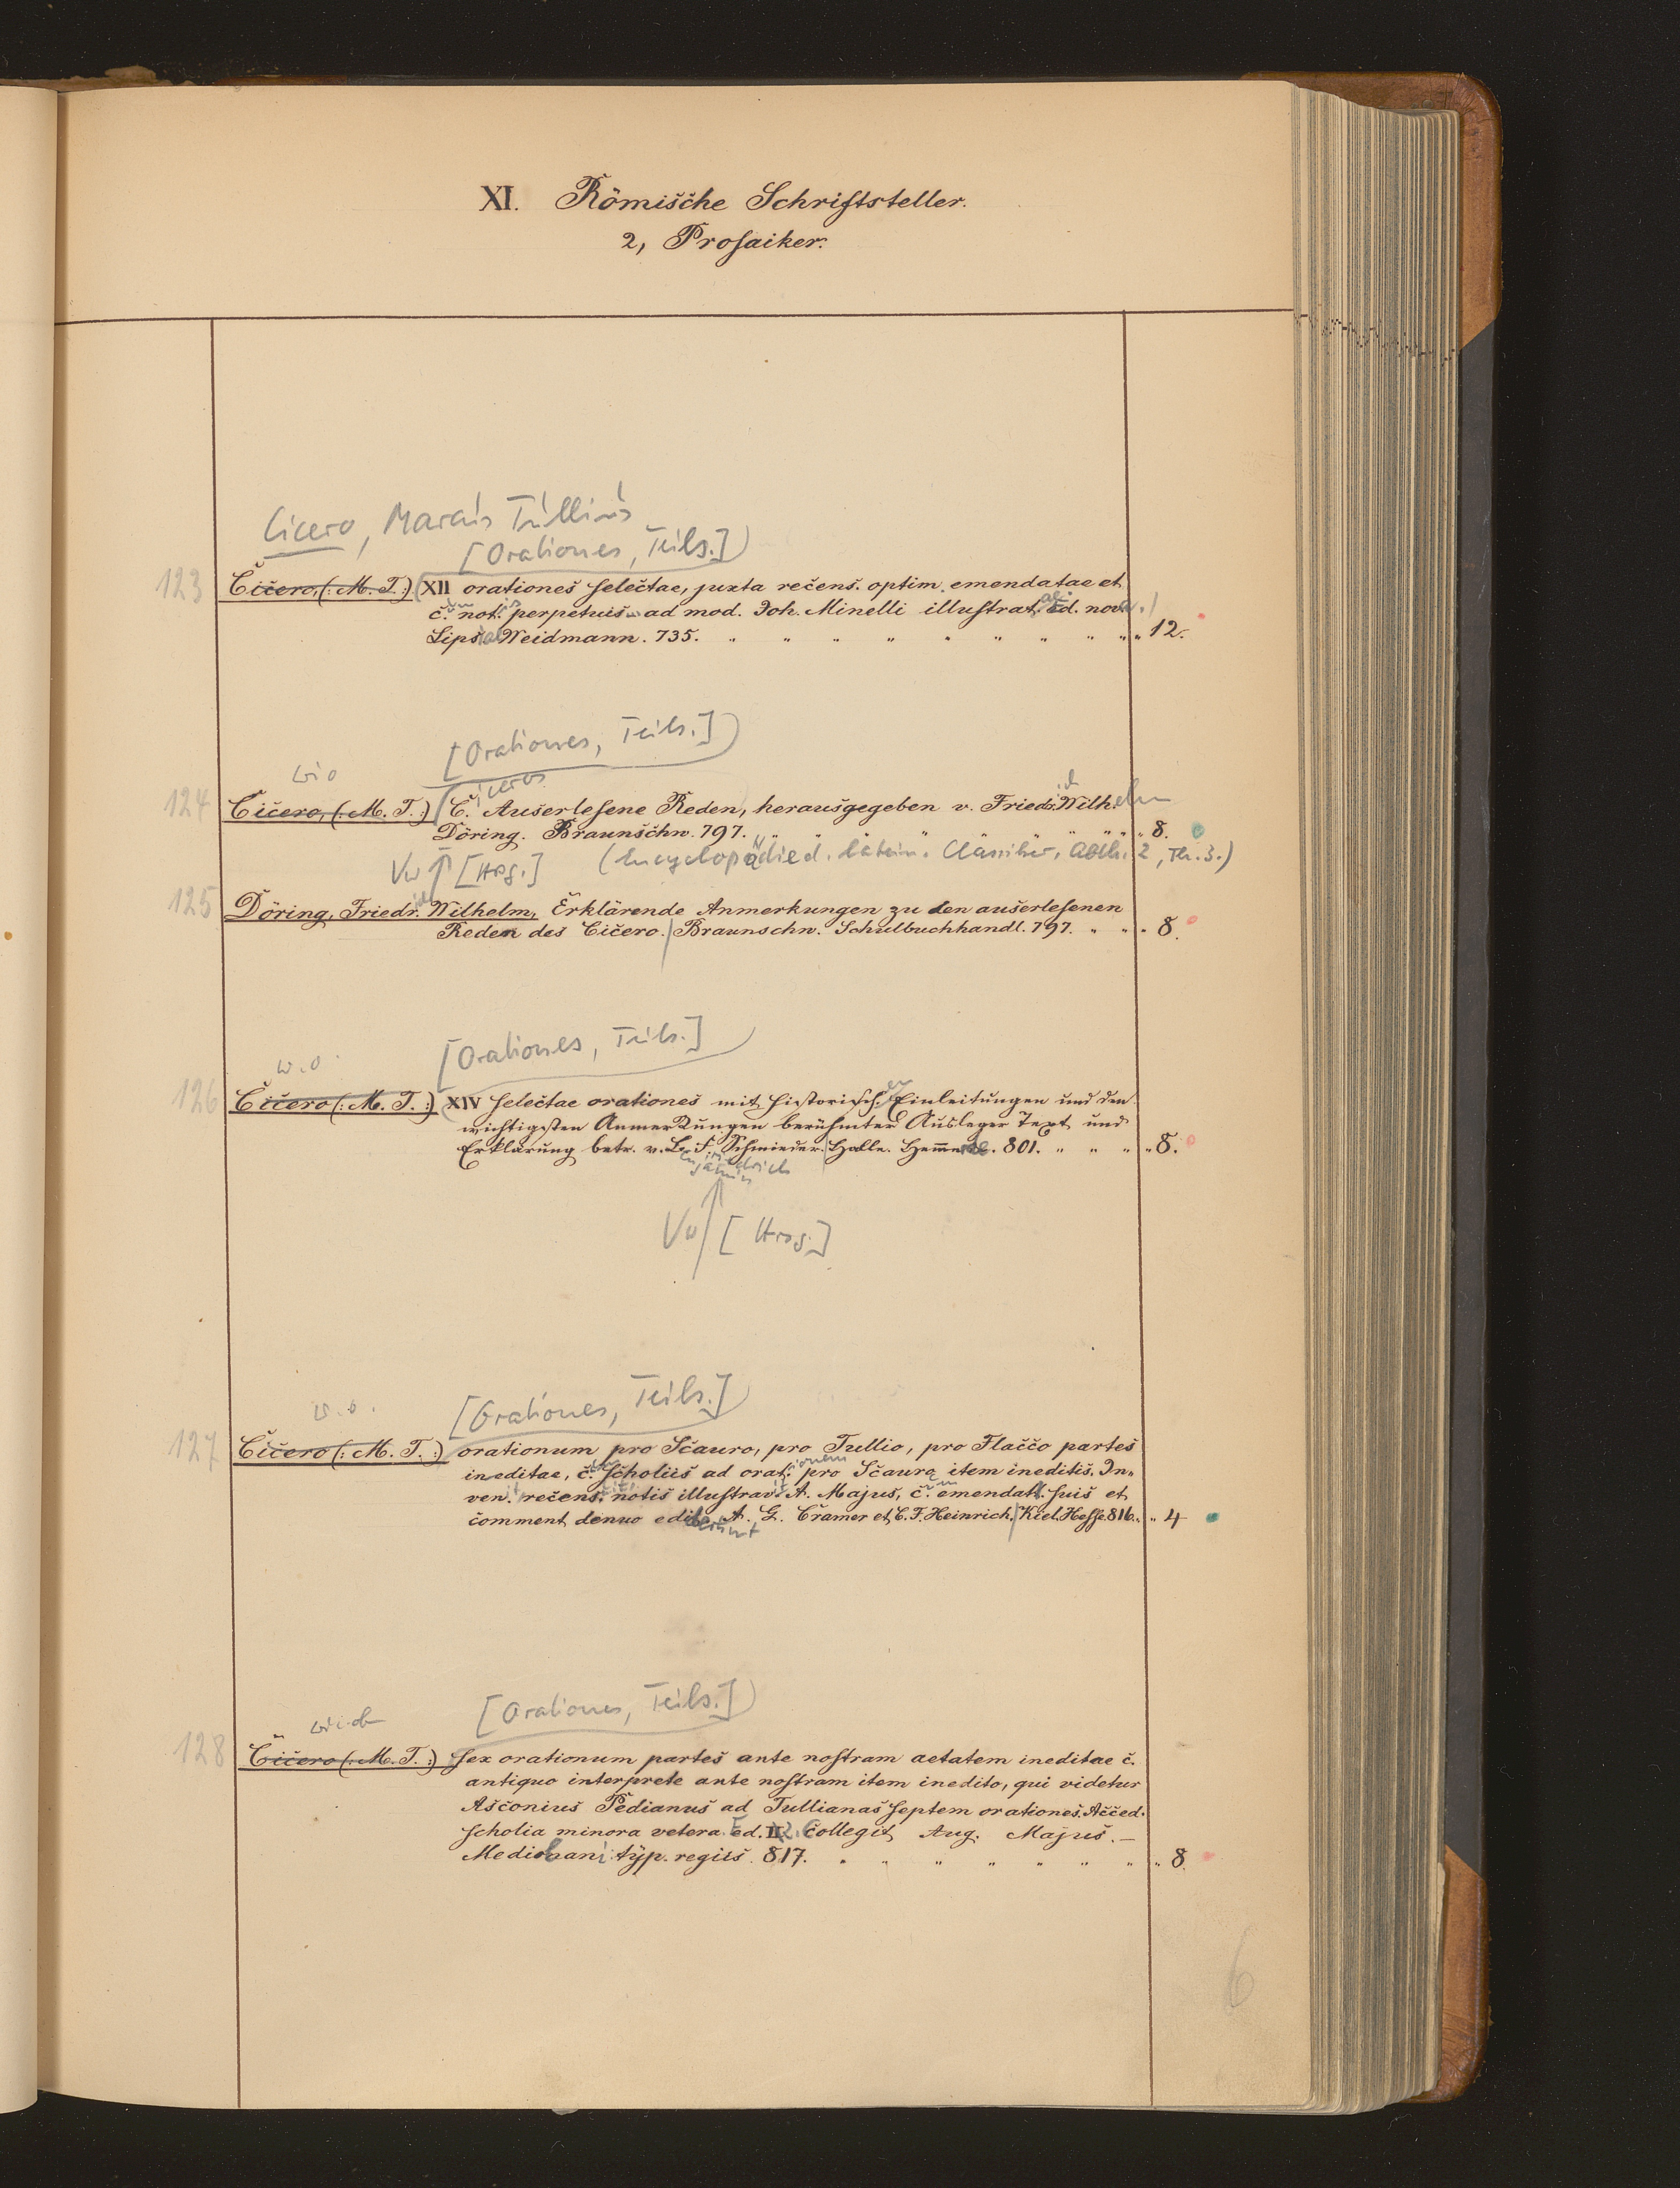 XI. Römische Schriftsteller.
2, Prosaiker.
Cicero, Marcus Tullius
[Orationes, Teils.]
123 Cicero, (: M. T. :) XII orationes selectae, juxta recens. optim. emendatae et
c. not. perpetuis ad mod. Joh. Minelli illustrat. Ed. nov.
Lips. Weidmann. 735. " " " " " " " " " " 12.
[Orationes, Teils.]
124 Cicero, (: M. T. :) C. Auserlesene Reden, herausgegeben v. Friedr. Wilhelm
Döring. Braunschw. 797. " " " " " " " " 8.
Vw [Hrsg.] (Encyclopädie d. latein. Classiker, Abth. 2, Th. 3.)
125 Döring, Friedr. Wilhelm, Erklärende Anmerkungen zu den auserlesenen
Reden des Cicero. Braunschw. Schulbuchhandl. 797. " " " 8.
[Orationes, Teils.]
w. o.
126 Cicero (: M. T. :) XIV selectae orationes mit historischen Einleitungen und den
wichtigsten Anmerkungen berühmter Ausleger Text und
Erklärung betr. v. B. F. Schmieder. Halle. Hemmerde. 801. " " " " 8.
enjamin riedrich
Vw [Hrsg.]
[Orationes, Teils.]
w. o.
127 Cicero (: M. T. :) orationum pro Scauro, pro Tullio, pro Flacco partes
ineditae, c. scholiis ad orationem pro Scauro item ineditis. In-
ven. recens. notis illustrav. A. Majus, c. emendatt. suis et
comment denuo ediderunt A. G. Cramer et C. F. Heinrich. Kiel. Hesse 816. " " 4
[Orationes, Teils.]
128 Cicero (: M. T. :) sex orationum partes ante nostram aetatem ineditae c.
antiquo interprete ante nostram item inedito, qui videtur
Asconius Pedianus ad Tullianas septem orationes. Acced.
scholia minora vetera. Ed. 2. collegit Aug. Majus. —
Mediolani typ. regiis 817. " " " " " " " " 8
6